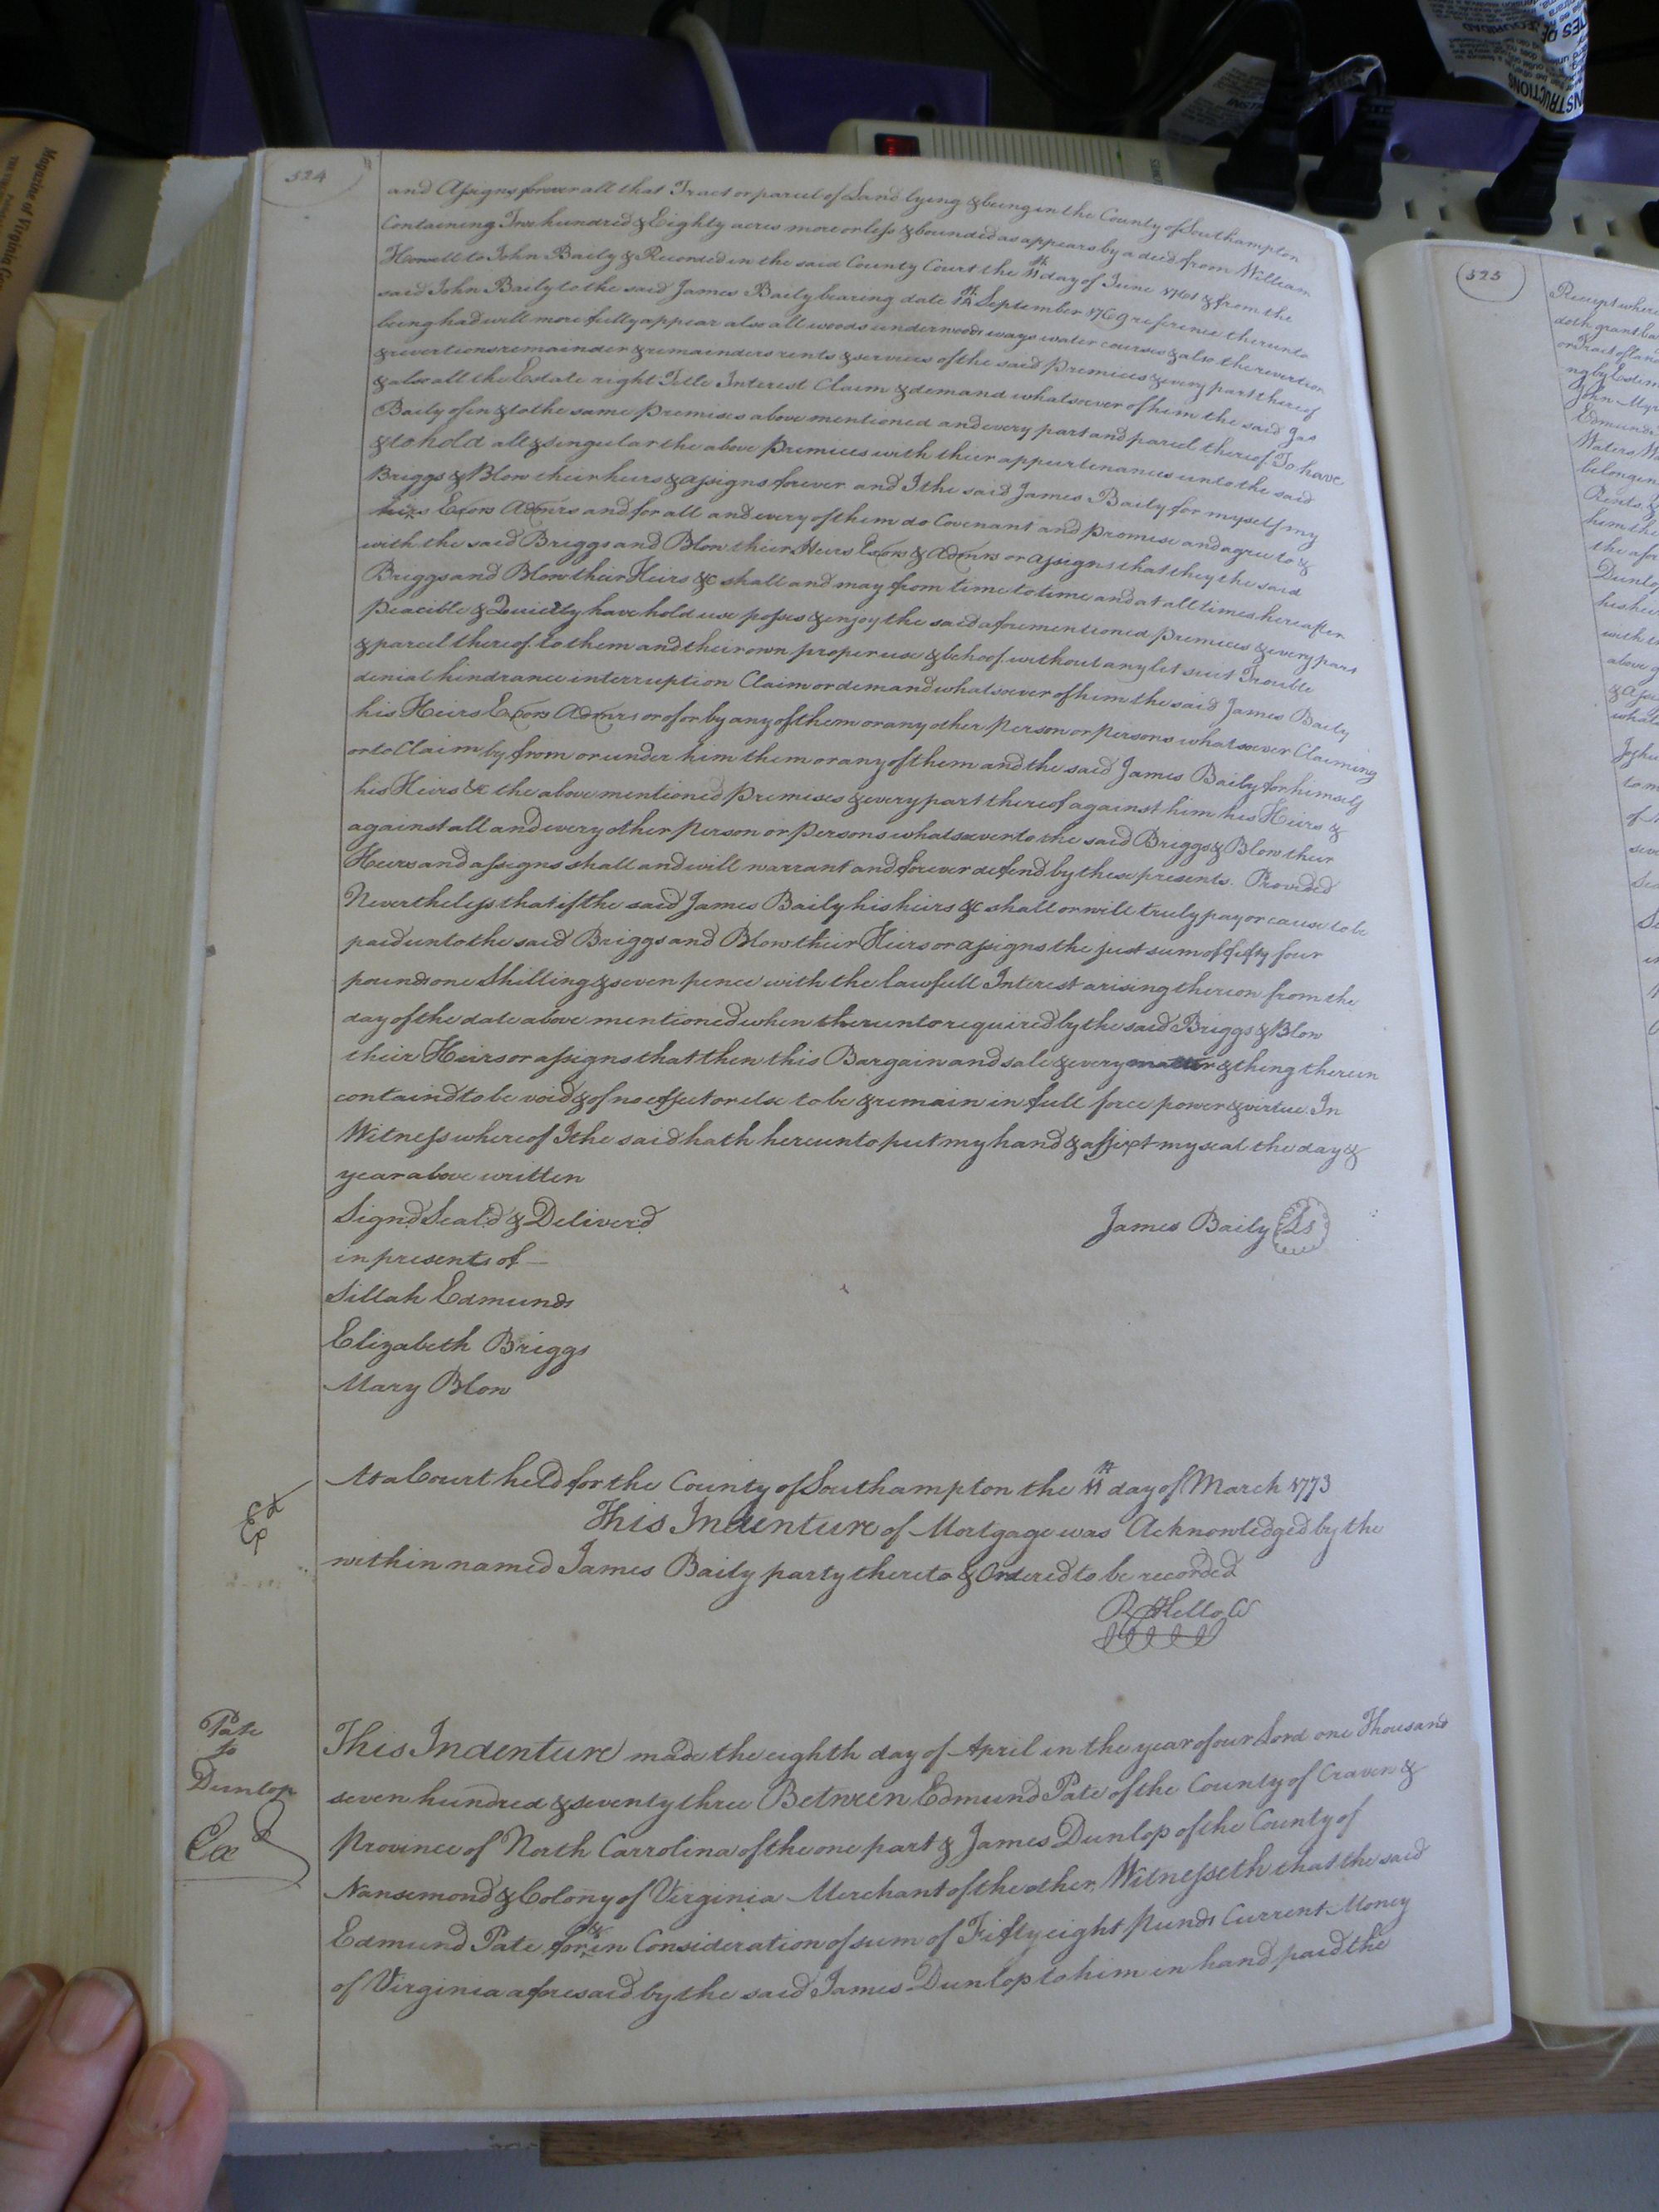 524
and Assigns forever all that Tract or parcel of Land lying & being in the County of Southampton
Containing Two hundred & Eighty acres more or less & bounded as appears by a deed from William
Howell to John Baily & Recorded in the said County Court the 11th day of June 1761 & from the
said John Baily to the said James Baily bearing date September 1769 reference thereunto
being had will more fully appear also all woods underwoods ways water courses & also the revertion
& revertions remainder & remainders rents & services of the said Premices & every part thereof
& also all the Estate right Title Interest Claim & demand whatsoever of him the said Jas
Baily of in & to the same Premises above mentioned and every part and parcel thereof To have
& to hold all & singular the above Premices with their appurtenances unto the said
Briggs & Blow their heirs & assigns forever and I the said James Baily for myself my
heirs Exors Admrs and for all and every of them do Covenant and Promise and agree to &
with the said Briggs and Blow their Heirs Exors & Admrs or assigns that they the said
Briggs and Blow their Heirs &c shall and may from time to time and at all times hereafter
Peacible & Quietly have hold use posses & enjoy the said aforementioned Premices & every part
& parcel thereof to them and their own proper use & behoof without any let suit Trouble
denial hindrance interruption Claim or demand whatsoever of him the said James Baily
his Heirs Exors Admrs or of or by any of them or any other Person or Persons whatsoever Claiming
or to Claim by from or under him them or any of them and the said James Baily for himself
his Heirs &c the above mentioned Premises & every part thereof against him his Heirs &
against all and every other Person or Persons whatsoever to the said Briggs & Blow their
Heirs and assigns shall and will warrant and forever defend by these presents. Provided
Nevertheless that if the said James Baily his heirs &c shall or will truly pay or cause to be
paid unto the said Briggs and Blow their Heirs or assigns the just sum of fifty four
pounds one Shilling & seven pence with the lawfull Interest arising thereon from the
day of the date above mentioned when thereunto required by the said Briggs & Blow
their Heirs or assigns that then this Bargain and sale & every matter & thing therein
containd to be void & of no effect or else to be & remain in full force power & virtue. In
Witness whereof I the said hath hereunto put my hand & affixt my seal the day &
year above written
Signd Seal'd & Deliver'd
James Baily Ls
in presents of
Sillah Edmunds
Elizabeth Briggs
Mary Blow
At a Court held for the County of Southampton the 11th day of March 1773
Exd
This Indenture of Mortgage was Acknowledged by the
within named James Baily party thereto & Ordered to be recorded
Pate
to
Dunlop
Exd
This Indenture made the eighth day of April in the year of our Lord one Thousand
seven hundred & seventy three Between Edmund Pate of the County of Craven &
Province of North Carrolina of the one part & James Dunlop of the County of
Nansemond & Colony of Virginia Merchant of the other, Witnesseth that the said
Edmund Pate for & in Consideration of sum of Fifty eight Punds Current Money
of Virginia aforesaid by the said James Dunlop to him in hand paid the
525
Receipt where
doth grant ba
or Tract of lan
ng by Estim
John Myr
Edmund
Waters Wa
belongin
Rents, &
him the
the afor
Dunlop
his hei
with th
above g
& assi
what
to m
of
Magazine of Virginia Ge
INSTRUCTIONS